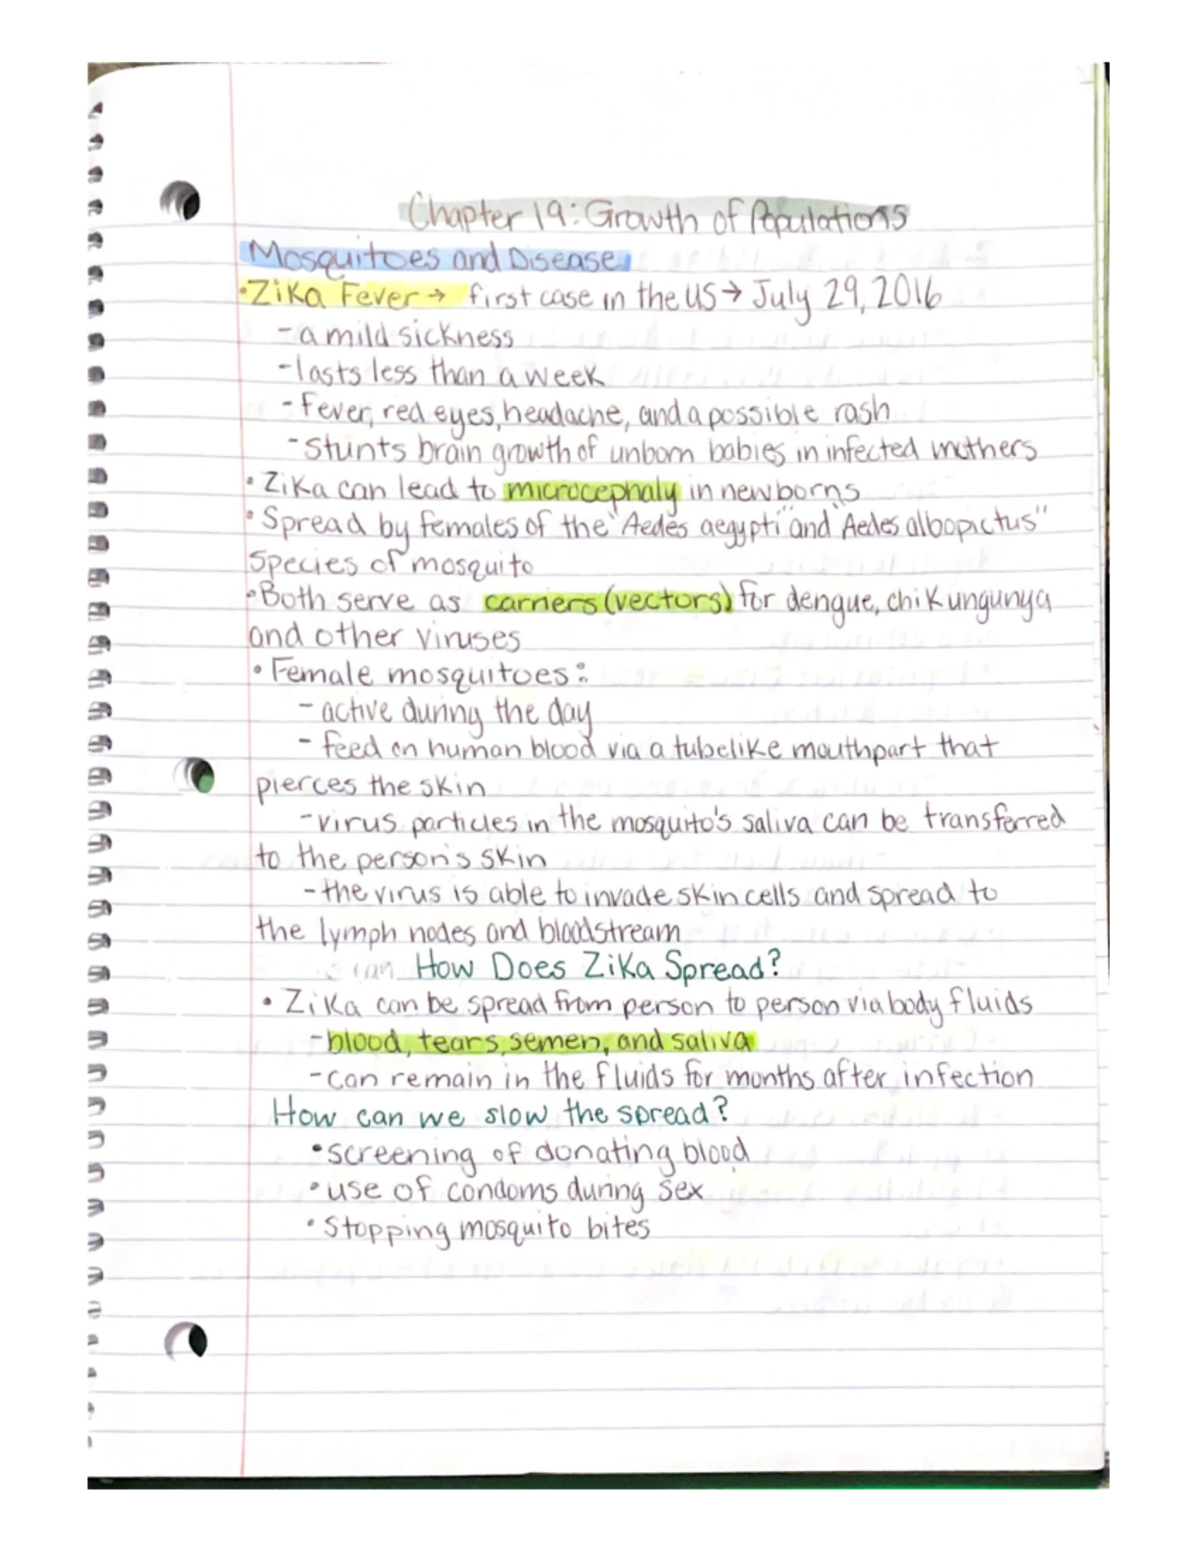 Chapter 19: Growth of Populations
Mosquitoes and Disease
•Zika Fever → first case in the US → July 29, 2016
- a mild sickness
- lasts less than a week
- Fever, red eyes, headache, and a possible rash
- stunts brain growth of unborn babies in infected mothers
• Zika can lead to microcephaly in newborns
• Spread by females of the "Aedes aegypti" and "Aedes albopictus"
Species of mosquito
•Both serve as carriers (vectors) for dengue, chikungunya
and other viruses
• Female mosquitoes:
- active during the day
- feed on human blood via a tubelike mouthpart that
pierces the skin
- virus particles in the mosquito's saliva can be transferred
to the person's skin
- the virus is able to invade skin cells and spread to
the lymph nodes and bloodstream
How Does Zika Spread?
• Zika can be spread from person to person via body fluids
- blood, tears, semen, and saliva
- can remain in the fluids for months after infection
How can we slow the spread?
• screening of donating blood
• use of condoms during sex
• Stopping mosquito bites